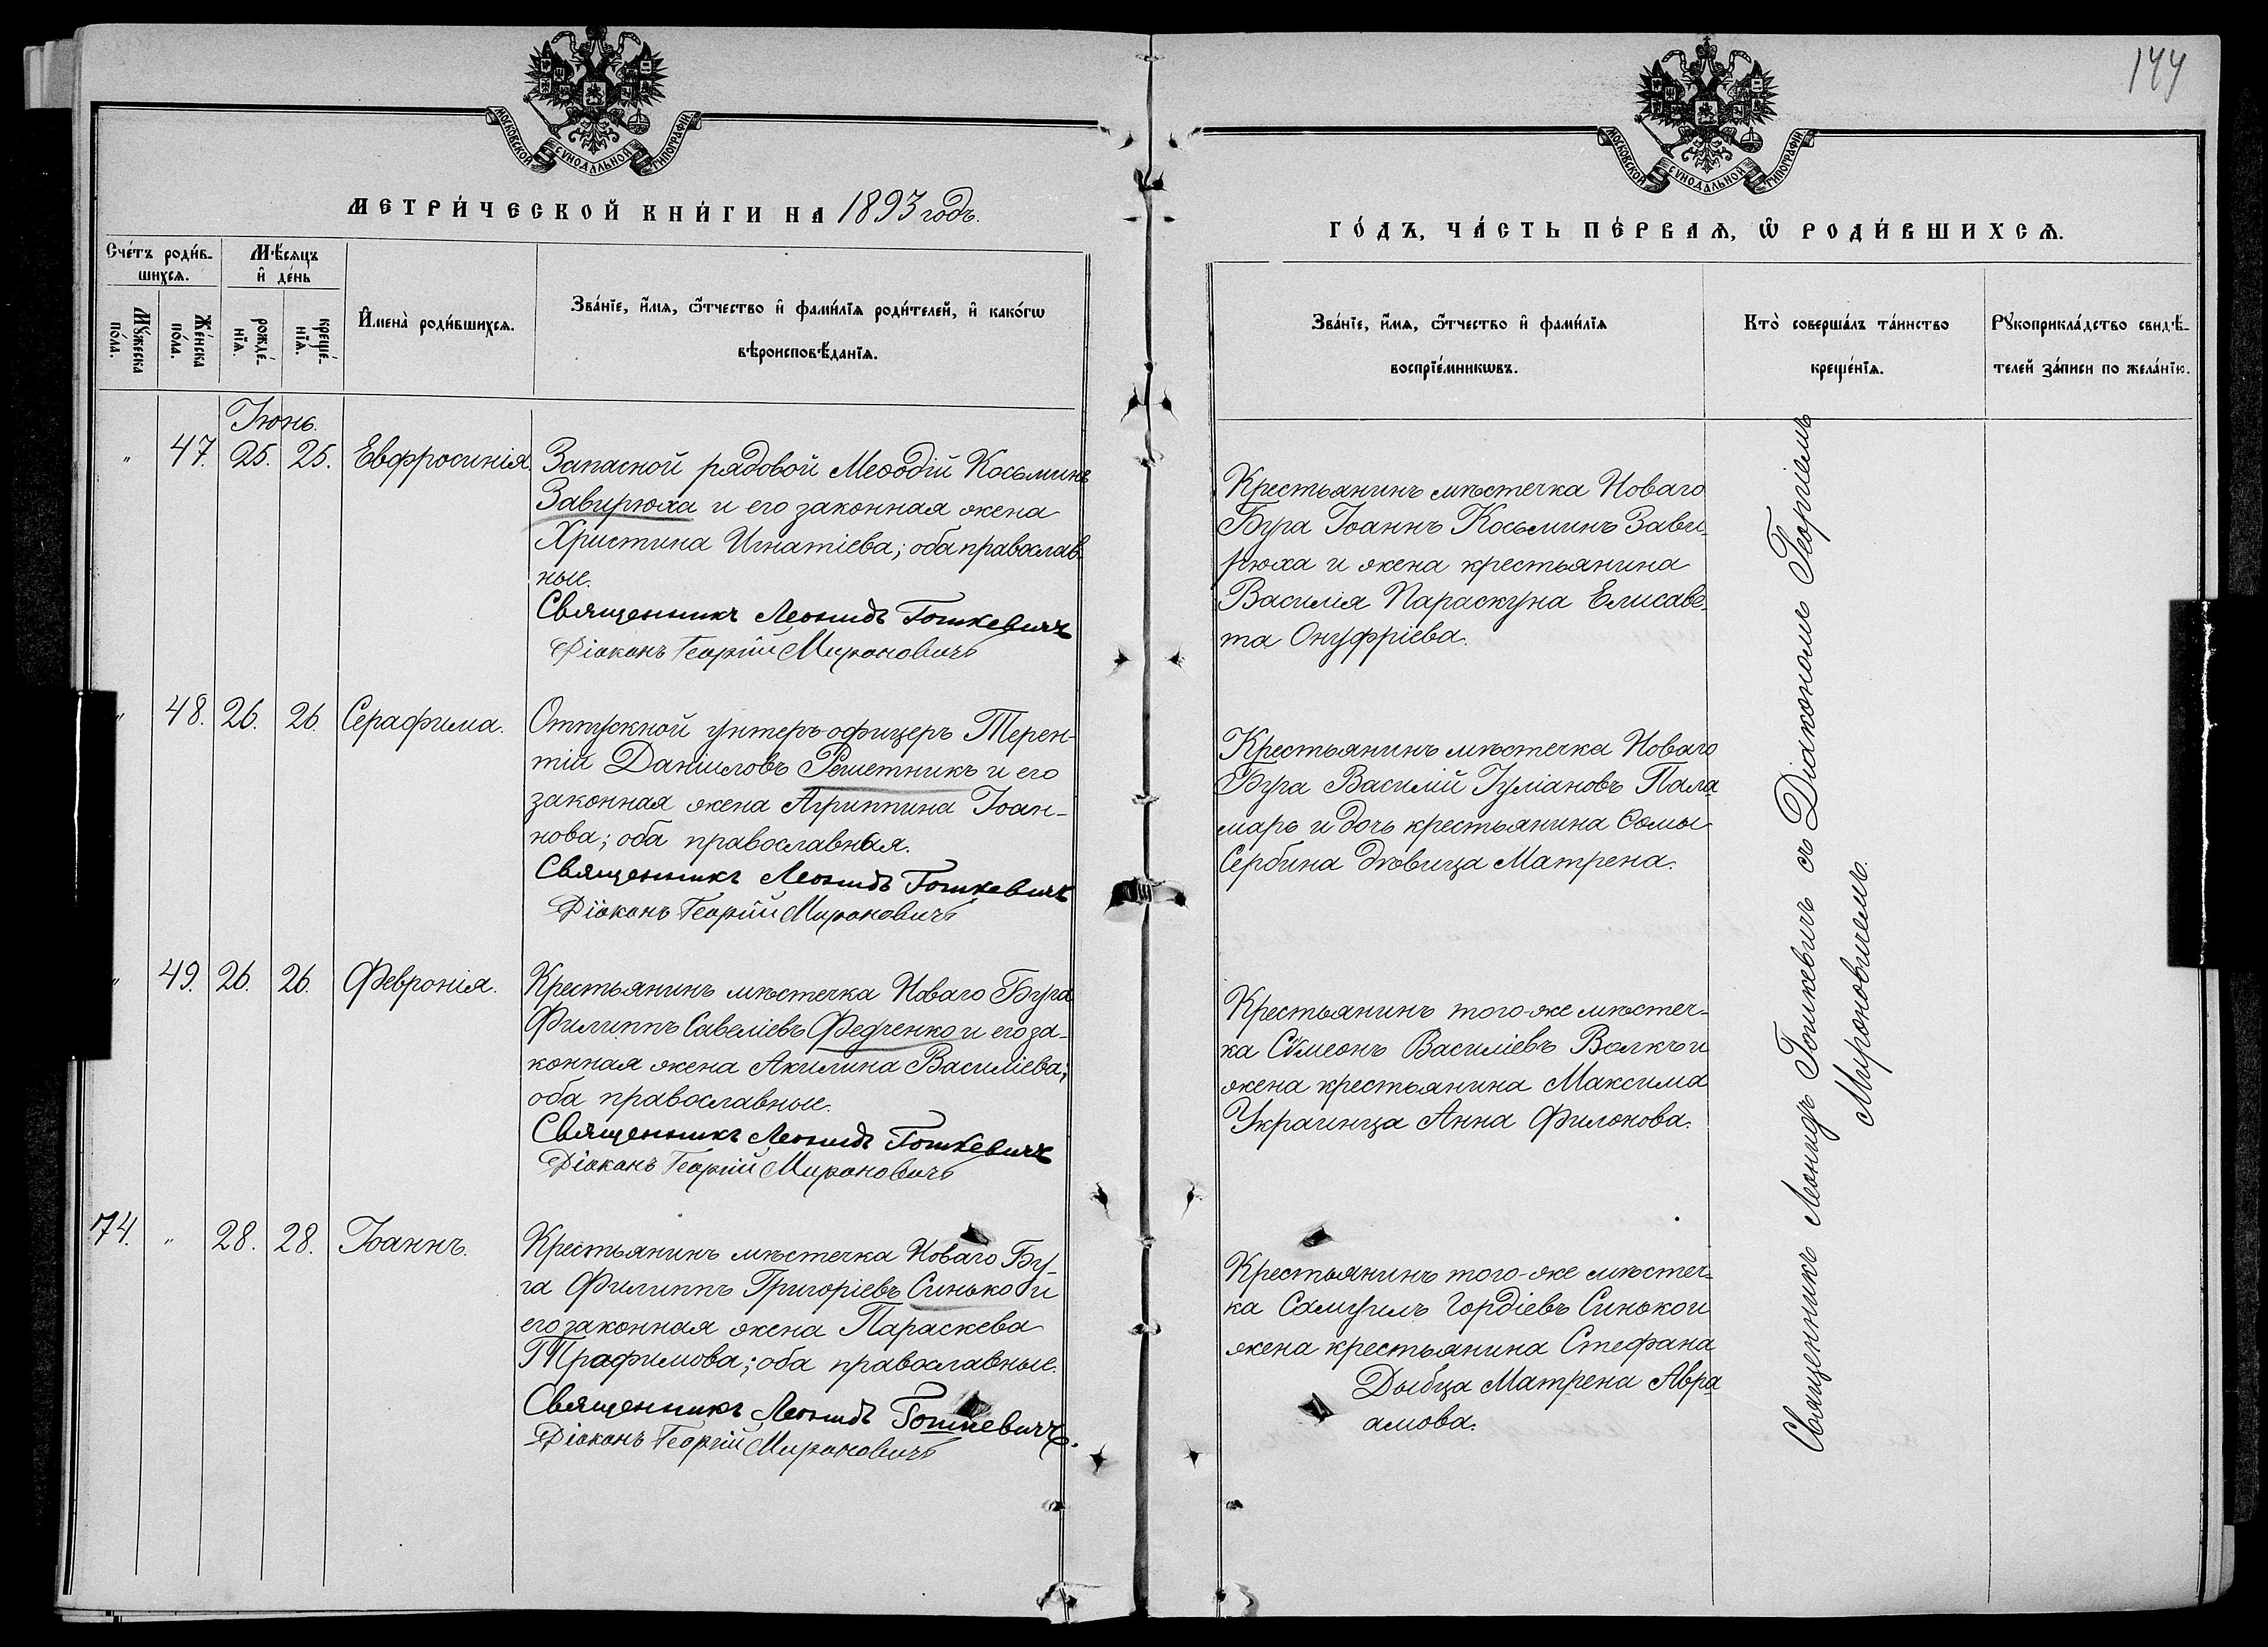 144
МОСКОВСКОЙ СѴНОДАЛЬНОЙ ТИПОГРАФІИ
МЕТРИ́ЧЕСКОЙ КНИ́ГИ НА 1893 годъ.
Сче́тъ роди́в-
шихсѧ.
Мꙋ́жеска
по́ла.
Же́нска
по́ла.
Мѣ́сяцъ
и҆ де́нь
рожде́-
нїѧ.
креще́-
нїѧ.
И҆мена̀ роди́вшихсѧ.
Зва́нїе, и҆́мѧ, ѻ҆́тчество и҆ фами́лїѧ роди́телей, и҆ како́гѡ
вѣроисповѣ́данїѧ.
Іюнь.
" 47. 25. 25. Евфросинія.
Запасной рядовой Меѳодій Косьминъ
Завирюха и его законная жена
Христина Игнатіева; оба православ-
ные.
Священникъ Леонидъ Гошкевичъ
Діаконъ Георгій Мироновичъ
" 48. 26. 26. Серафима.
Отпускной унтеръ-офицеръ Терен-
тій Даніиловъ Решетникъ и его
законная жена Агриппина Іоан-
нова; оба православная.
Священникъ Леонидъ Гошкевичъ
Діаконъ Георгій Мироновичъ
" 49. 26. 26. Февронія.
Крестьянинъ мѣстечка Новаго Буга
Филиппъ Савеліевъ Федченко и его за-
конная жена Акилина Василіева;
оба православные.
Священникъ Леонидъ Гошкевичъ
Діаконъ Георгій Мироновичъ
74. " 28. 28. Іоаннъ.
Крестьянинъ мѣстечка Новаго Бу-
га Филиппъ Григоріевъ Синько и
его законная жена Параскева
Трофимова; оба православные.
Священникъ Леонидъ Гошкевичъ.
Діаконъ Георгій Мироновичъ
МОСКОВСКОЙ СѴНОДАЛЬНОЙ ТИПОГРАФІИ
ГО́ДЪ, ЧА́СТЬ ПЕ́РВАѦ, Ѡ҆ РОДИ́ВШИХСѦ.
Зва́нїе, и҆́мѧ, ѻ҆́тчество и҆ фами́лїѧ
воспрїе́мникѡвъ.
Кто̀ соверша́лъ та́инство
креще́нїѧ.
Рꙋкоприкла́дство свидѣ́-
телей за́писи по жела́нїю.
Крестьянинъ мѣстечка Новаго
Буга Іоаннъ Косьминъ Зави-
рюха и жена крестьянина
Василія Параскуна Елисаве-
та Онуфріева.
Крестьянинъ мѣстечка Новаго
Буга Василій Іуліановъ Пала-
марь и дочь крестьянина Ѳомы
Сербина дѣвица Матрена.
Крестьянинъ того-же мѣстеч-
ка Сѵмеонъ Василіевъ Волкъ и
жена крестьянина Максима
Украинца Анна Филонова.
Крестьянинъ того-же мѣстеч-
ка Самуилъ Гордіевъ Синько и
жена крестьянина Стефана
Дыбца Матрена Авра-
амова.
Священникъ Леонидъ Гошкевичъ съ Діакономъ Георгіемъ
Мироновичемъ.